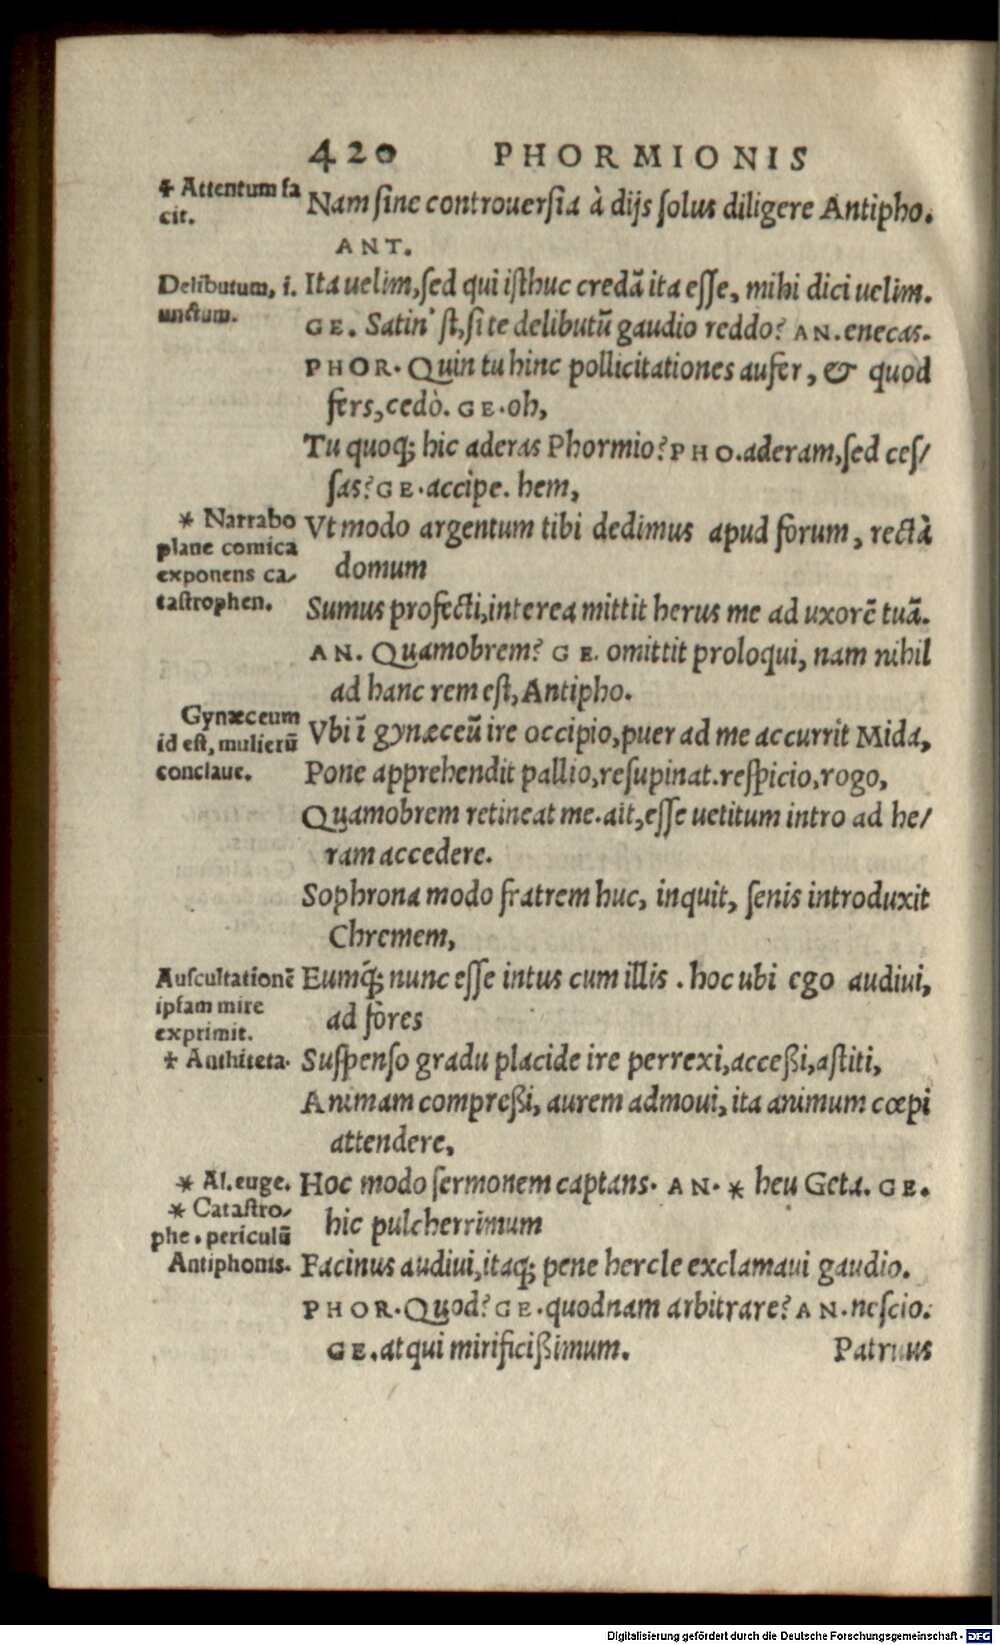 420 PHORMIONIS
+ Attentum fa
cit.
Nam sine controuersia à dijs solus diligere Antipho.
ANT.
Delibutum, i.
unctum.
Ita uelim, sed qui isthuc credā ita esse, mihi dici uelim.
GE. Satin' st, si te delibutū gaudio reddo? AN. enecas.
PHOR. Quin tu hinc pollicitationes aufer, & quod
fers, cedò. GE. oh,
Tu quoq; hic aderas Phormio? PHO. aderam, sed ces/
sas? GE. accipe. hem,
* Narrabo
plane comica
exponens ca/
tastrophen.
Vt modo argentum tibi dedimus apud forum, rectà
domum
Sumus profecti, interea mittit herus me ad uxorē tuā.
AN. Quamobrem? GE. omittit proloqui, nam nihil
ad hanc rem est, Antipho.
Gynæceum
id est, mulierū
conclaue.
Vbi ī gynæceū ire occipio, puer ad me accurrit Mida,
Pone apprehendit pallio, resupinat. respicio, rogo,
Quamobrem retineat me. ait, esse uetitum intro ad he/
ram accedere.
Sophrona modo fratrem huc, inquit, senis introduxit
Chremem,
Auscultationē
ipsam mire
exprimit.
Eumq́; nunc esse intus cum illis . hoc ubi ego audiui,
ad fores
+ Anthiteta.
Suspenso gradu placide ire perrexi, acceßi, astiti,
Animam compreßi, aurem admoui, ita animum cœpi
attendere,
* Al. euge.
* Catastro/
phe . periculū
Antiphonis.
Hoc modo sermonem captans. AN. * heu Geta. GE.
hic pulcherrimum
Facinus audiui, itaq; pene hercle exclamaui gaudio.
PHOR. Quod? GE. quodnam arbitrare? AN. nescio.
GE. atqui mirificißimum. Patruus
Digitalisierung gefördert durch die Deutsche Forschungsgemeinschaft - DFG